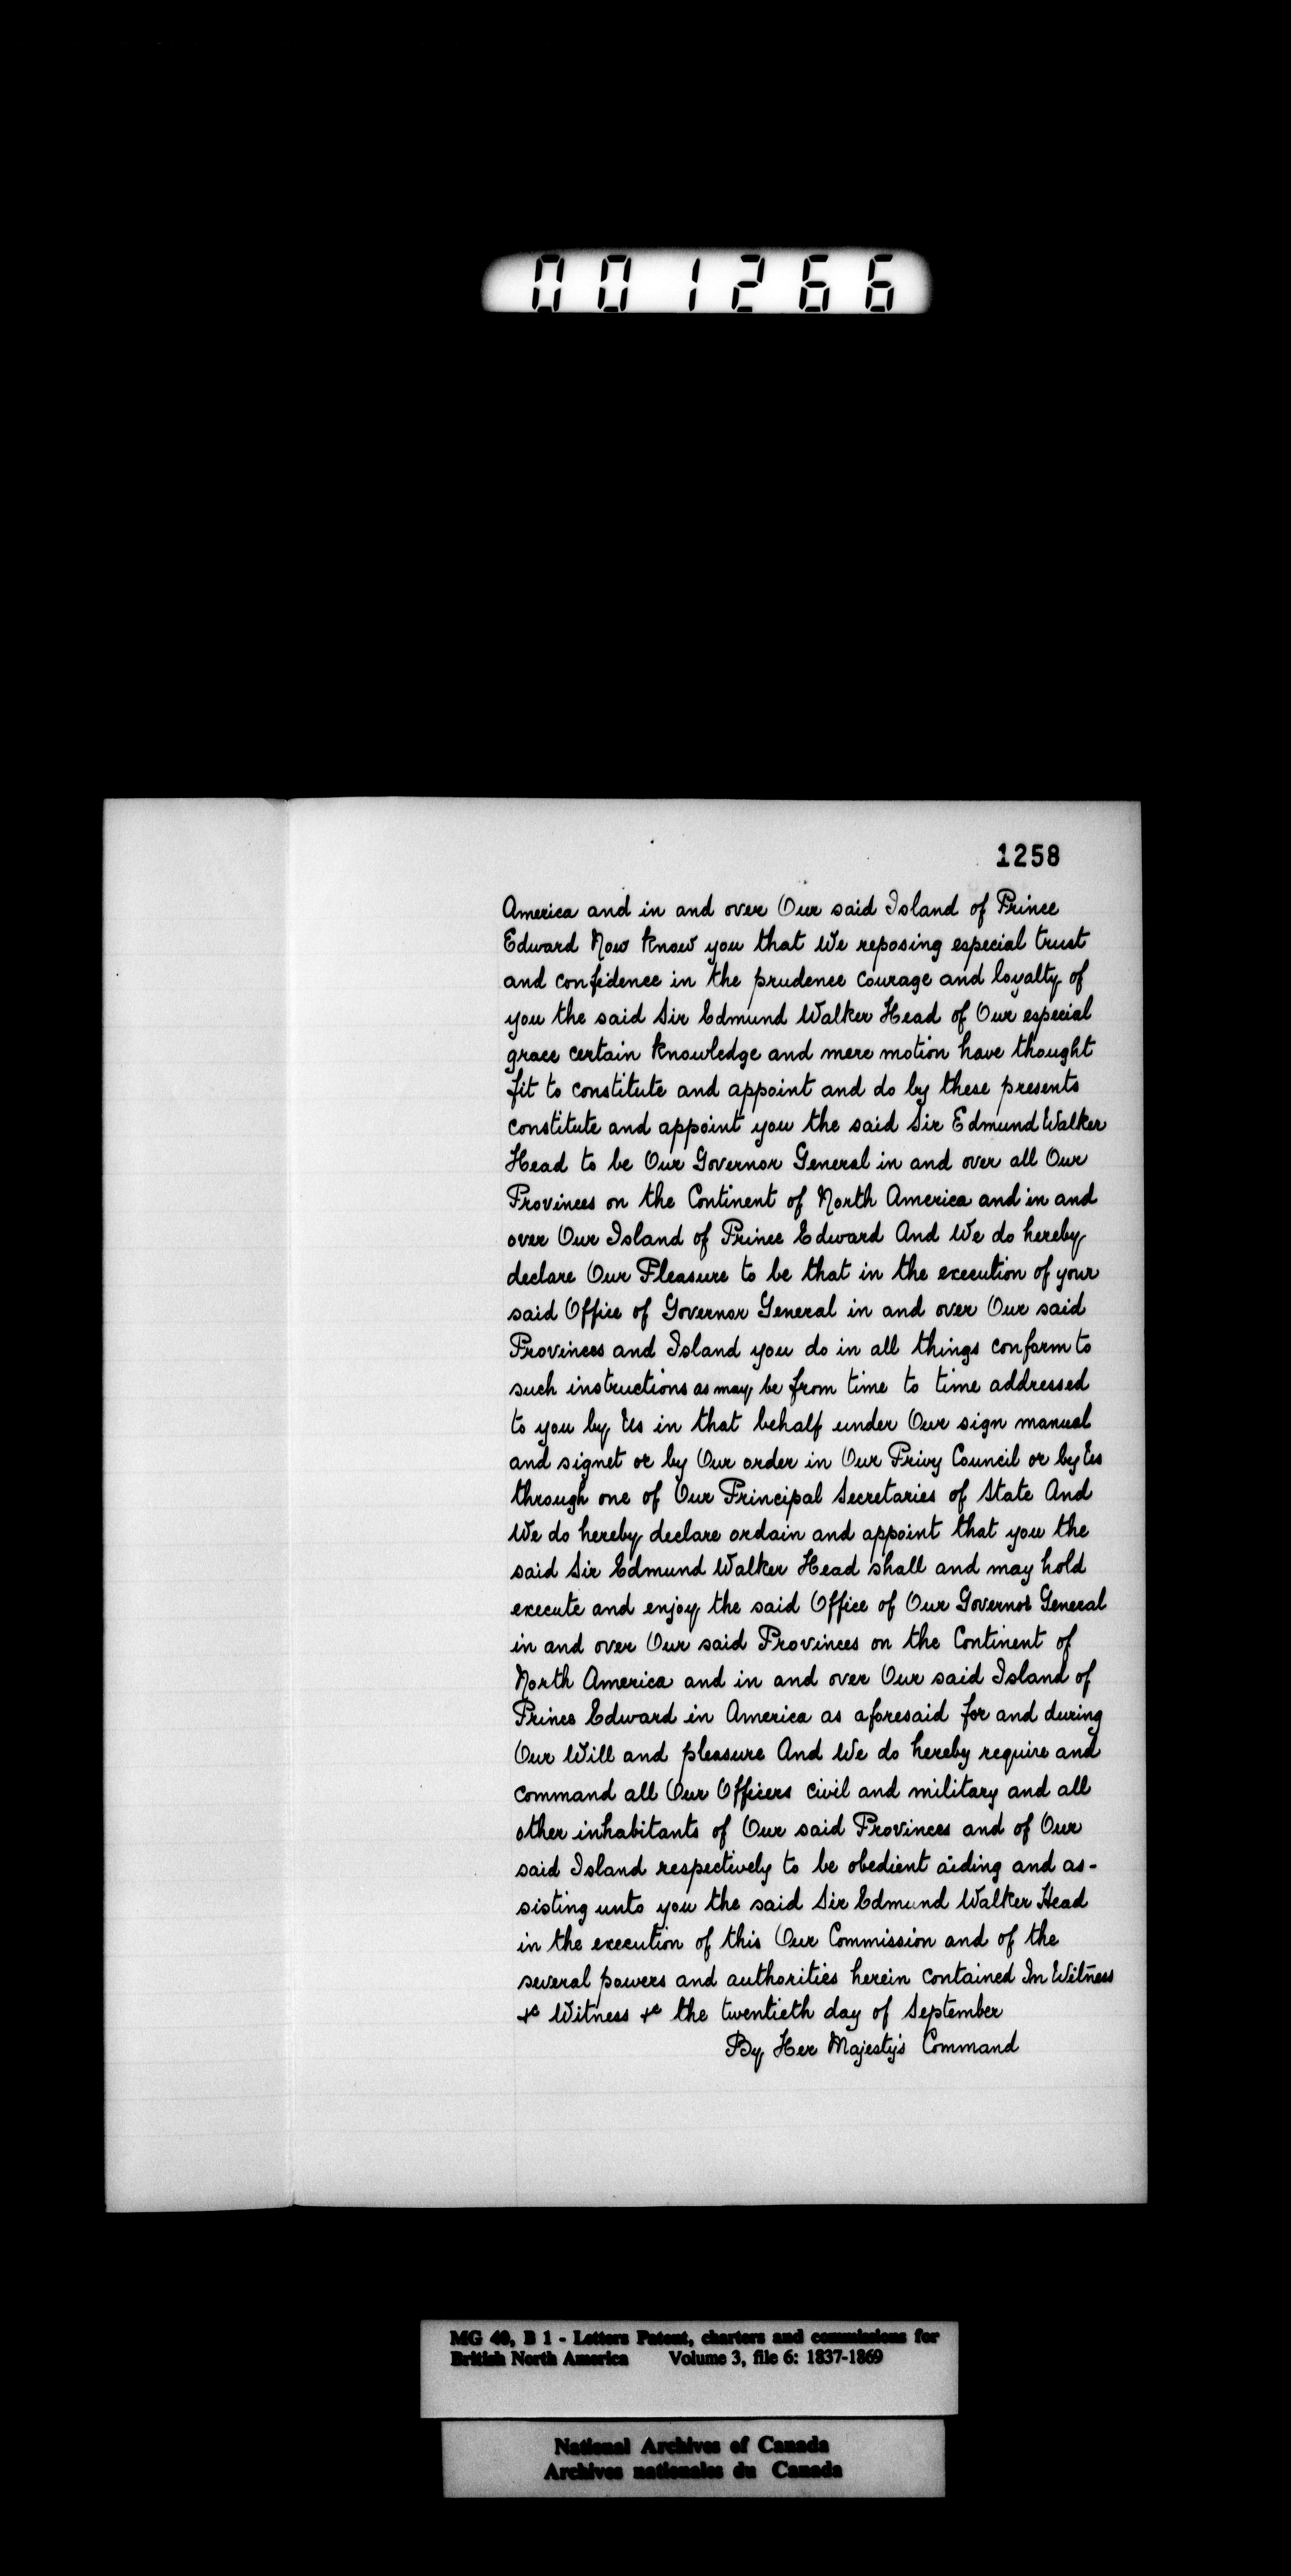 001266
1258
America and in and over Our said Island of Prince
Edward Now know you that We reposing especial trust
and confidence in the prudence courage and loyalty of
you the said Sir Edmund Walker Head of Our especial
grace certain knowledge and mere motion have thought
fit to constitute and appoint and do by these presents
constitute and appoint you the said Sir Edmund Walker
Head to be Our Governor General in and over all Our
Provinces on the Continent of North America and in and
over Our Island of Prince Edward And We do hereby
declare Our Pleasure to be that in the execution of your
said Office of Governor General in and over Our said
Provinces and Island you do in all things conform to
such instructions as may be from time to time addressed
to you by Us in that behalf under Our sign manual
and signet or by Our order in Our Privy Council or by Us
through one of Our Principal Secretaries of State And
We do hereby declare ordain and appoint that you the
said Sir Edmund Walker Head shall and may hold
execute and enjoy the said Office of Our Governor General
in and over Our said Provinces on the Continent of
North America and in and over Our said Island of
Prince Edward in America as aforesaid for and during
Our Will and pleasure And We do hereby require and
command all Our Officers civil and military and all
other inhabitants of Our said Provinces and of Our
said Island respectively to be obedient aiding and as-
sisting unto you the said Sir Edmund Walker Head
in the execution of this Our Commission and of the
several powers and authorities herein contained In Witness
&c Witness &c the twentieth day of September
By Her Majesty's Command
MG 40, B 1 - Letters Patent, charters and commissions for
British North America Volume 3, file 6: 1837-1869
National Archives of Canada
Archives nationales du Canada